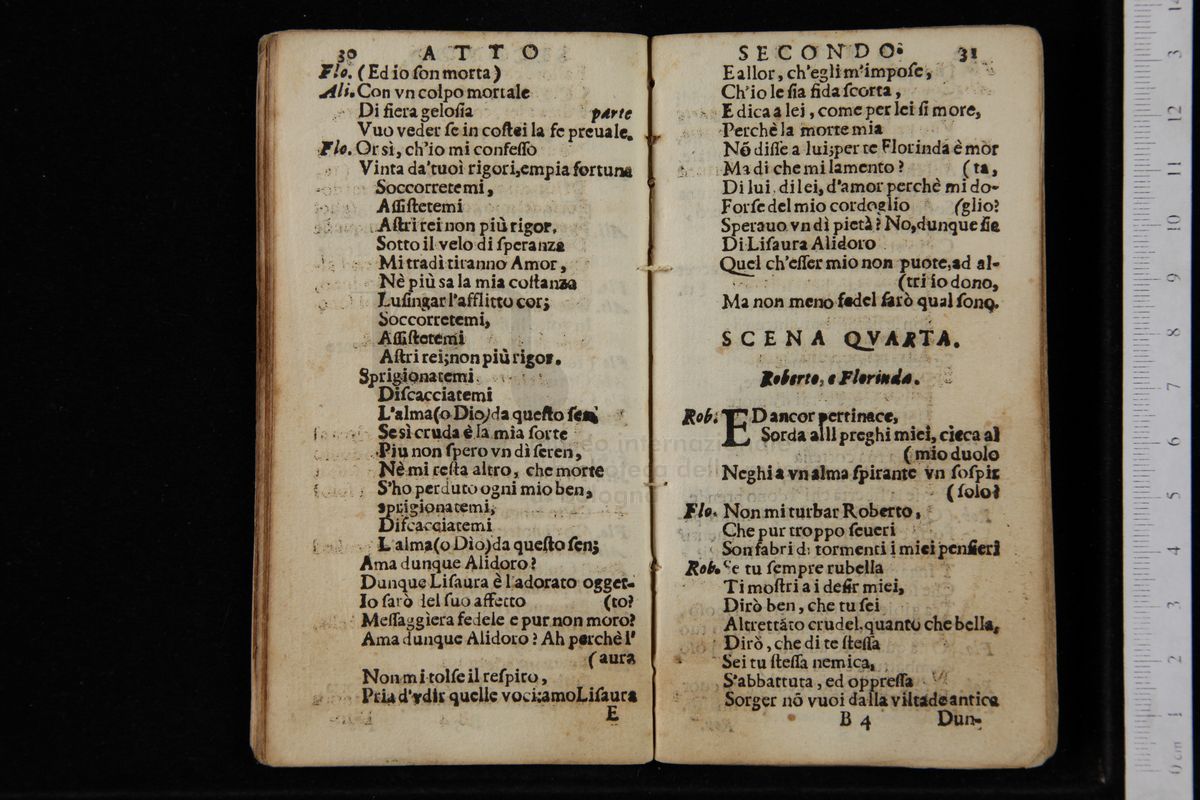 30 ATTO
Flo. (Ed io ſon morta)
Ali. Con vn colpo mortale
Di fiera geloſia parte
Vuo veder ſe in coſtei la fe preuale.
Flo. Or sì, ch'io mi confeſſo
Vinta da'tuoì rigori, empia fortuna
Soccorretemi,
Aſſiſtetemi
Aſtri rei non più rigor.
Sotto il velo di ſperanza
Mi tradì tiranno Amor,
Nè più sa la mia coſtanza
Luſingar l'afflitto cor;
Soccorretemi,
Aſſiſtetemi
Aſtri rei;non più rigor.
Sprigionatemi
Diſcacciatemi
L'alma(o Dio)da queſto ſen
Se sì cruda è la mia ſorte
Piu non ſpero vn dì ſeren,
Nè mi reſta altro, che morte
S'ho perduto ogni mio ben,
sprigionatemi,
Diſcacciatemi
L'alma(o Dio)da queſto ſen;
Ama dunque Alidoro?
Dunque Liſaura è l'adorato ogget-
Io ſarò del ſuo affetto (to?
Meſſaggiera fedele e pur non moro?
Ama dunque Alidoro? Ah perchè l'
(aura
Non mi tolſe il reſpito,
Pria d'vdir quelle voci:amo Liſaura
E
SECONDO. 31
E allor, ch'egli m'impoſe,
Ch'io le ſia fida ſcorta,
E dica a lei, come per lei ſi more,
Perchè la morte mia
Nõ diſſe a lui;per te Florinda è mor
Ma di che mi lamento? (ta,
Di lui, di lei, d'amor perchè mi do-
Forſe del mio cordoglio (glio?
Sperauo vn dì pietà? No, dunque ſia
Di Liſaura Alidoro
Quel ch'eſſer mio non puote, ad al-
(tri io dono,
Ma non meno fedel ſarò qual ſono.
SCENA QVARTA.
Roberto, e Florinda.
Rob. ED ancor pertinace,
Sorda alli preghi miei, cieca al
(mio duolo
Neghi a vn alma ſpirante vn ſoſpir
(ſolo?
Flo. Non mi turbar Roberto,
Che pur troppo ſeueri
Son fabri di tormenti i miei penſieri
Rob. Se tu ſempre rubella
Ti moſtri a i deſir miei,
Dirò ben, che tu ſei
Altrettãto crudel, quanto che bella,
Dirò, che di te ſteſſa
Sei tu ſteſſa nemica,
S'abbattuta, ed oppreſſa
Sorger nõ vuoi dalla viltade antica
B 4 Dun-